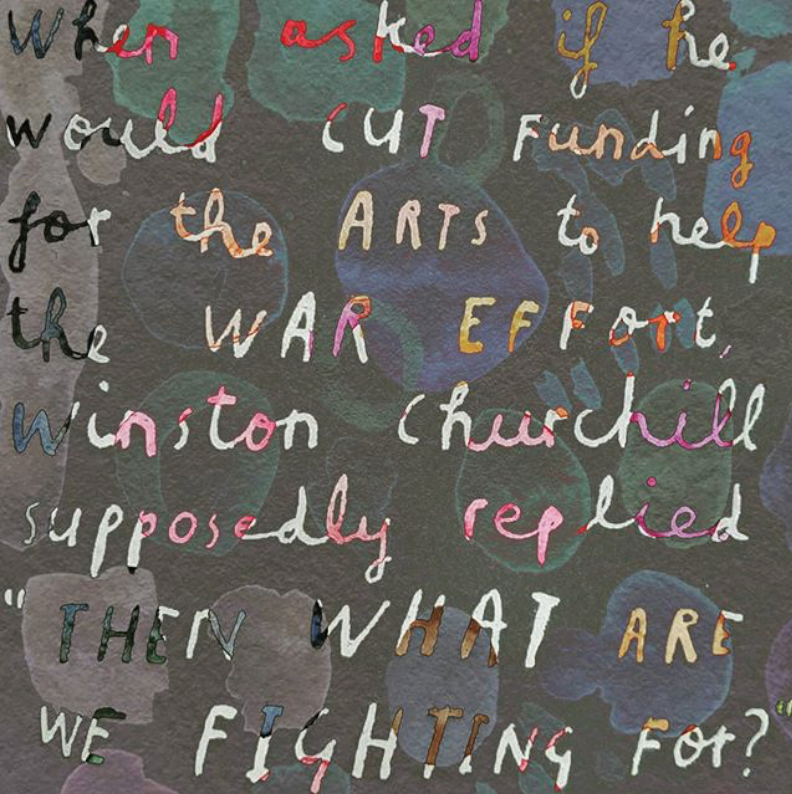 When asked if he
would CUT Funding
for the ARTS to help
the WAR EFFort,
winston churchill
supposedly replied
"THEN WHAT ARE
WE FIGHTING For?"